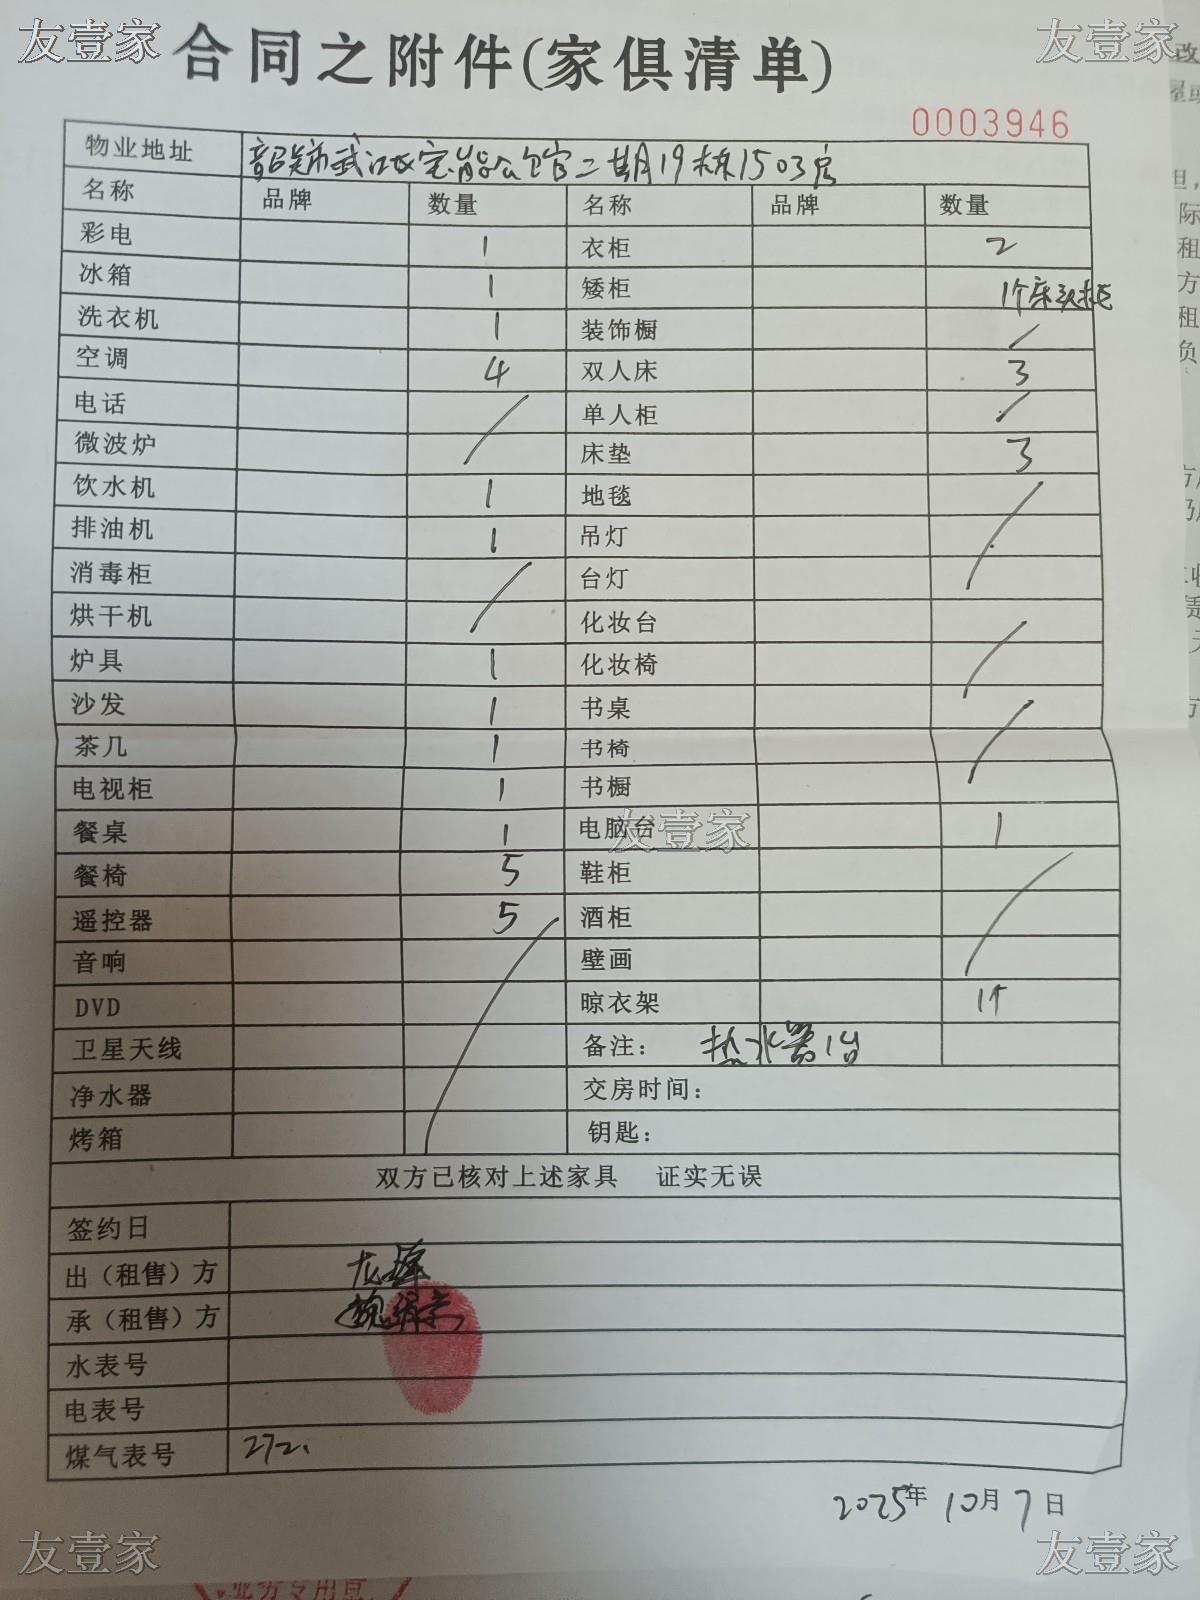 友壹家
友壹家
合同之附件(家俱清单)
0003946
物业地址 韶关市武江区宝能公馆二期19栋1503房
名称 品牌 数量 名称 品牌 数量
彩电 1 衣柜 2
冰箱 1 矮柜 1个床头柜
洗衣机 1 装饰橱 /
空调 4 双人床 3
电话 / 单人柜 /
微波炉 床垫 3
饮水机 1 地毯 /
排油机 1 吊灯
消毒柜 / 台灯
烘干机 化妆台 /
炉具 1 化妆椅
沙发 1 书桌 /
茶几 1 书椅
电视柜 1 书橱
餐桌 1 电脑台 1
餐椅 5 鞋柜 /
遥控器 5 酒柜
音响 / 壁画
DVD 晾衣架 1个
卫星天线 备注： 热水器1台
净水器 交房时间：
烤箱 钥匙：
双方已核对上述家具 证实无误
签约日
出（租售）方
承（租售）方
水表号
电表号
煤气表号 272.
2025年10月7日
友壹家
友壹家
友壹家
业务专用章